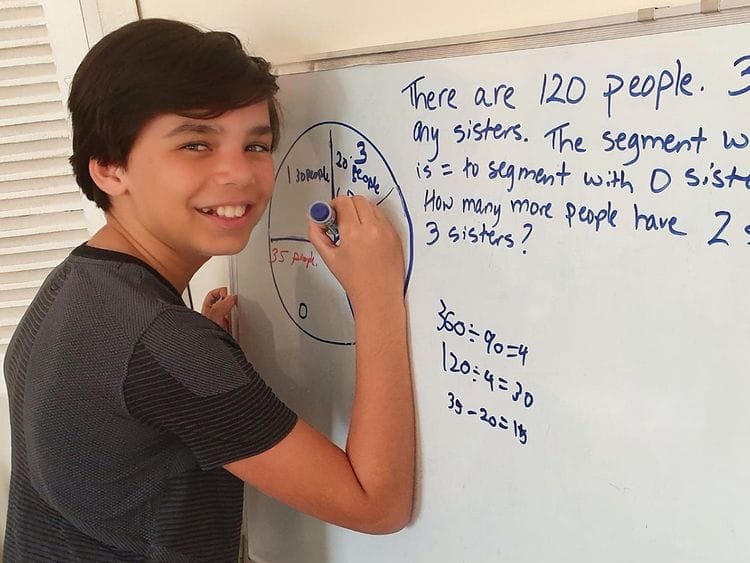 There are 120 people. 3
any sisters. The segment w
is = to segment with 0 siste
How many more people have 2 s
3 sisters?
1 30people
20. 3
people
35 people.
0
360÷90=4
120÷4=30
35-20=15